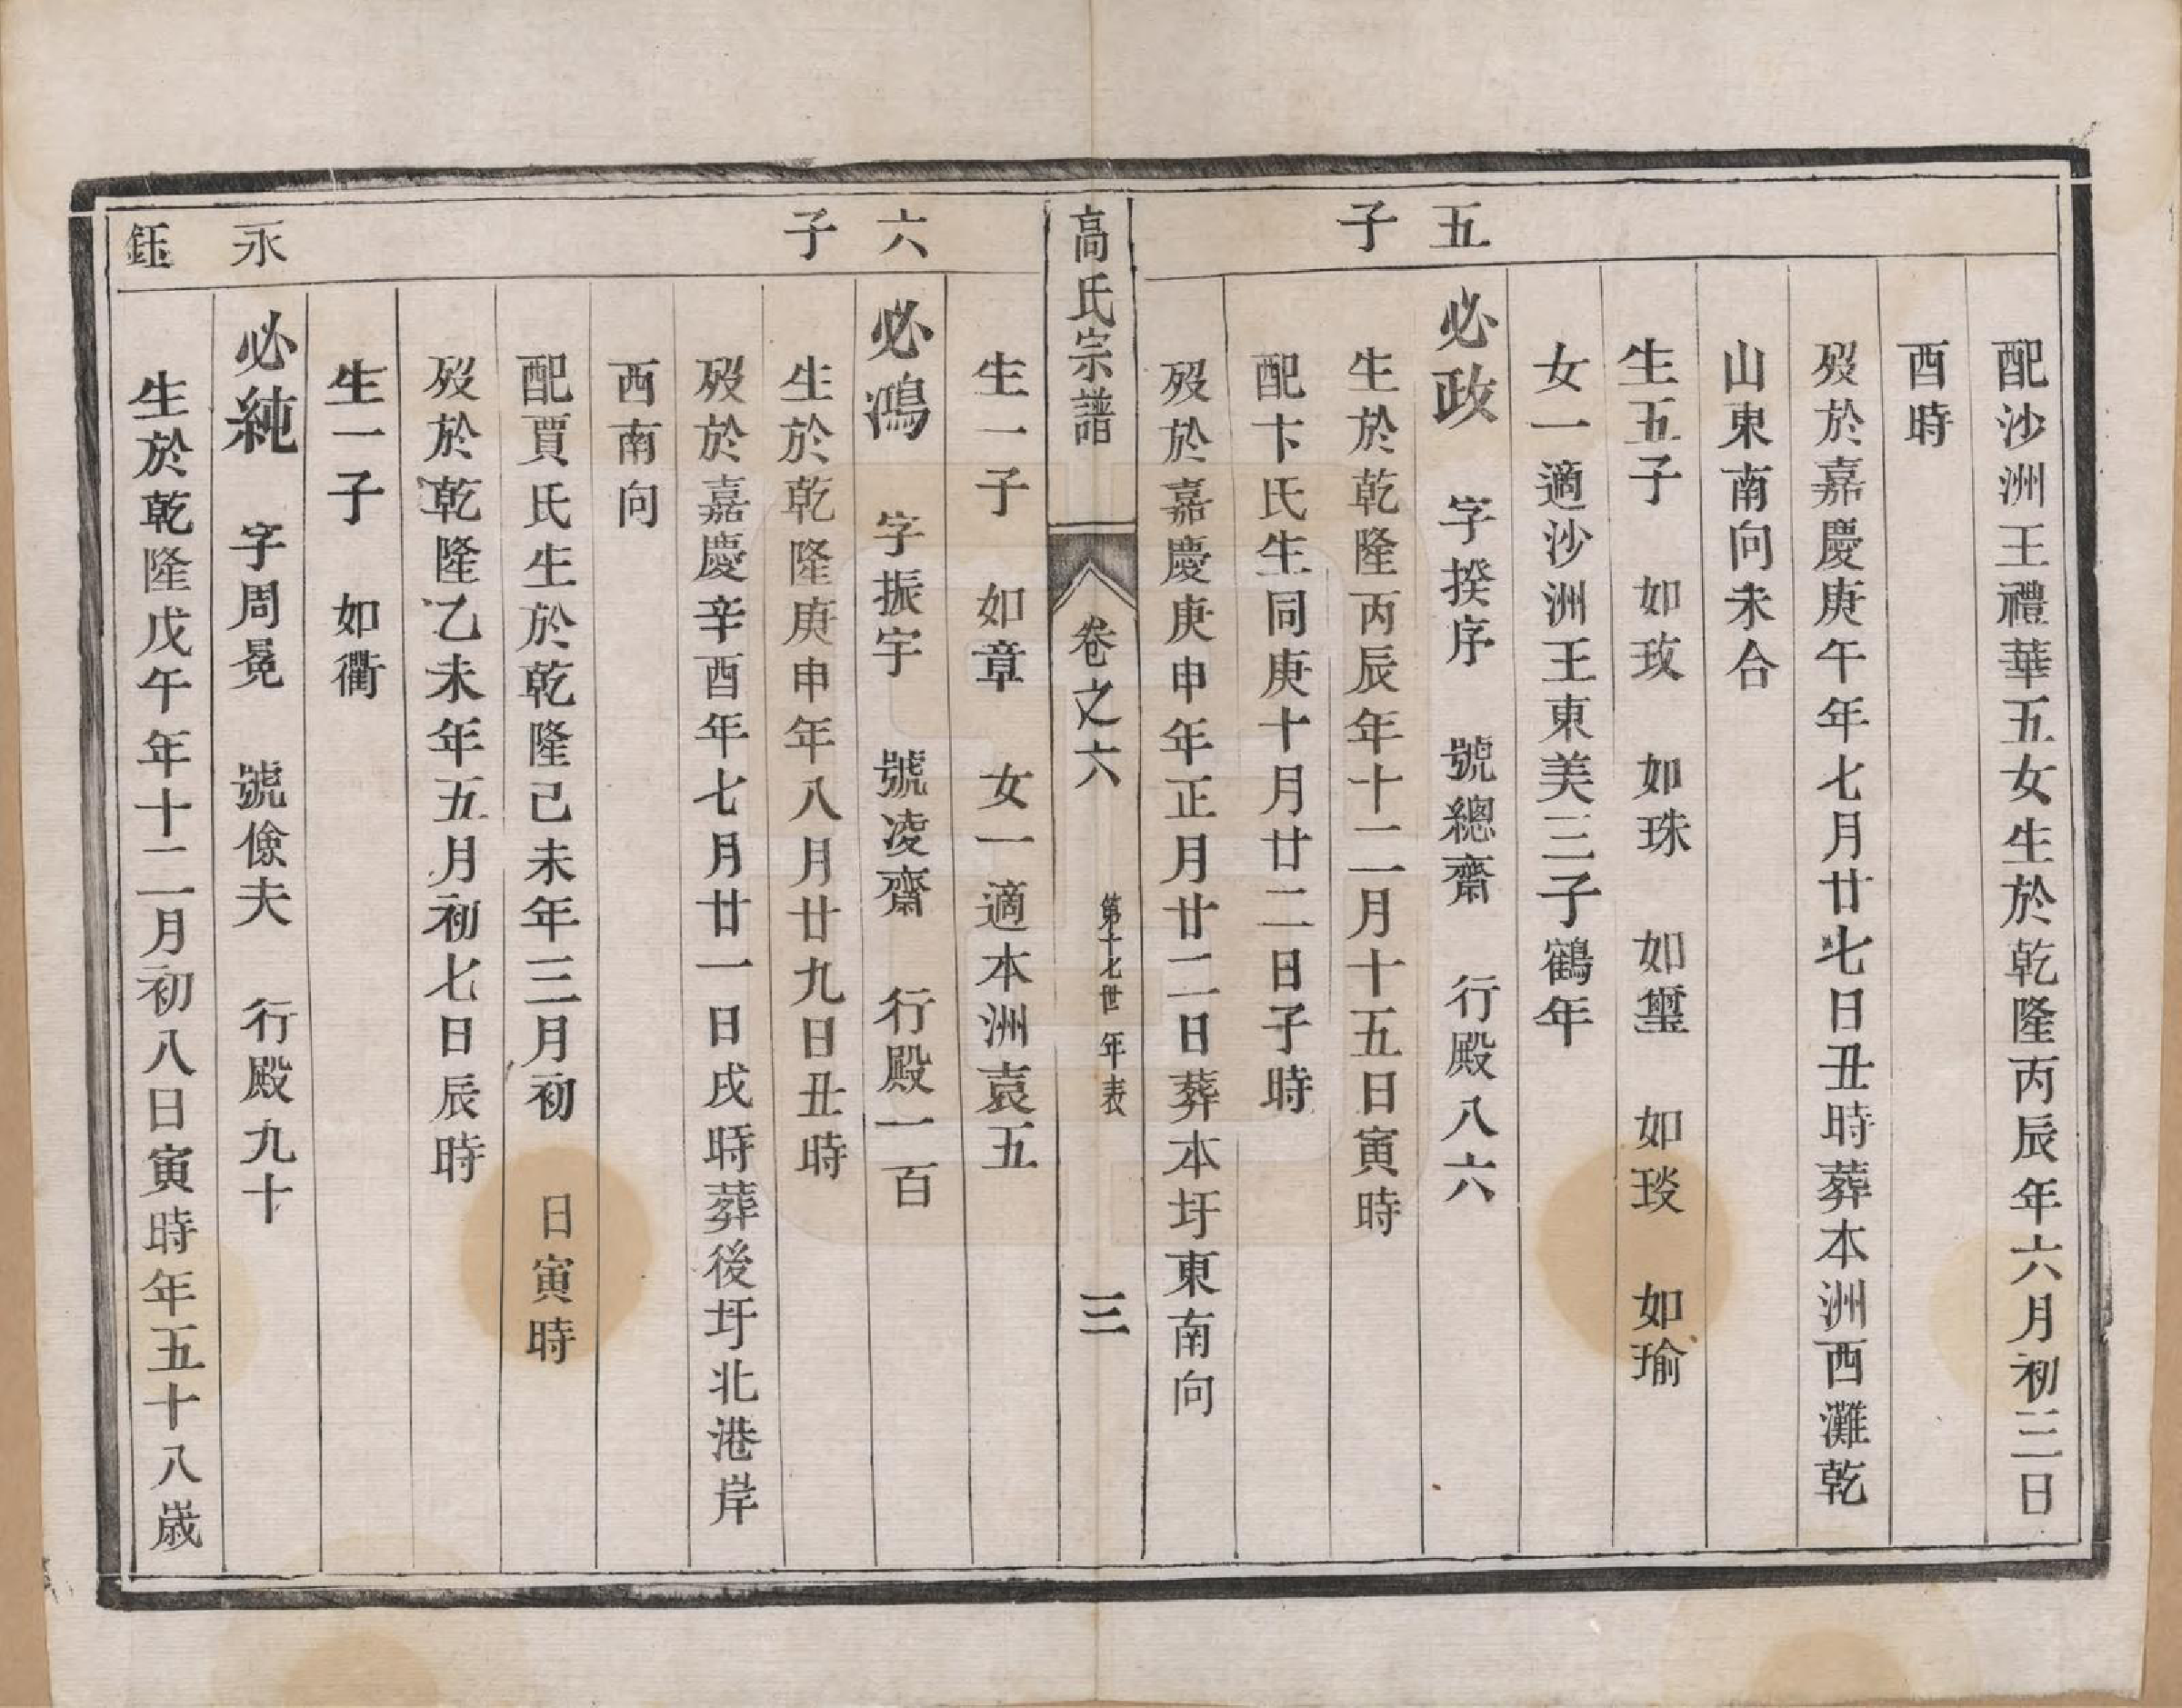 配沙洲王禮華五女生於乾隆丙辰年六月初三日
酉時
歿於嘉慶庚午年七月廿七日丑時葬本洲西灘乾
山東南向未合
生五子 如玫 如珠 如璽 如琰 如瑜
女一適沙洲王東美三子鶴年
五子
必政 字揆序 號總齋 行殿八六
生於乾隆丙辰年十二月十五日寅時
配卞氏生同庚十月廿二日子時
歿於嘉慶庚申年正月廿二日葬本圩東南向
高氏宗譜 卷之六 第十七世年表 三
生一子 如章 女一適本洲袁五
六子
必鴻 字振宇 號凌齋 行殿一百
生於乾隆庚申年八月廿九日丑時
歿於嘉慶辛酉年七月廿一日戌時葬後圩北港岸
西南向
配賈氏生於乾隆己未年三月初 日寅時
歿於乾隆乙未年五月初七日辰時
生一子 如衢
永鈺
必純 字周冕 號儉夫 行殿九十
生於乾隆戊午年十二月初八日寅時年五十八歲